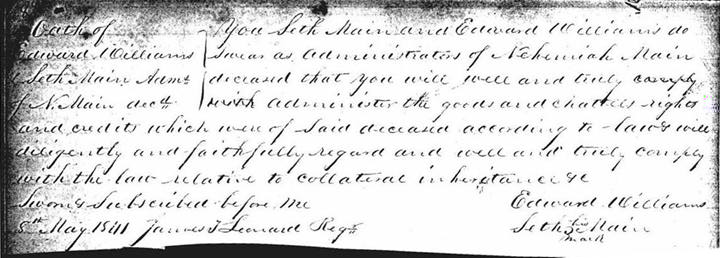 Oath of
Edward Williams
& Seth Main Admr
of N. Main decd
You Seth Main and Edward Williams do
swear as administrators of Nehemiah Main
deceased that you will well and truly comply
with administer the goods and chattels rights
and credits which were of said deceased according to law & will
diligently and faithfully regard and well and truly comply
with the law relative to collateral inheritance &c
Sworn & Subscribed before me
8th May 1841 James T Leonard Regr
Edward Williams
Seth his Main
mark